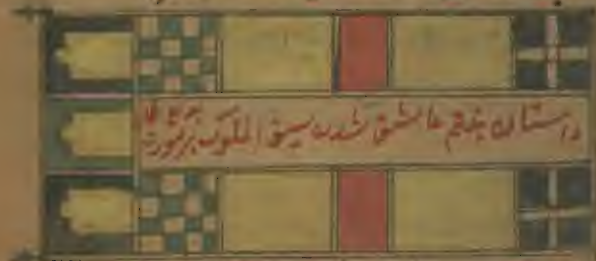 داستان پنجم عاشق شدن سیف الملوک بر صورت